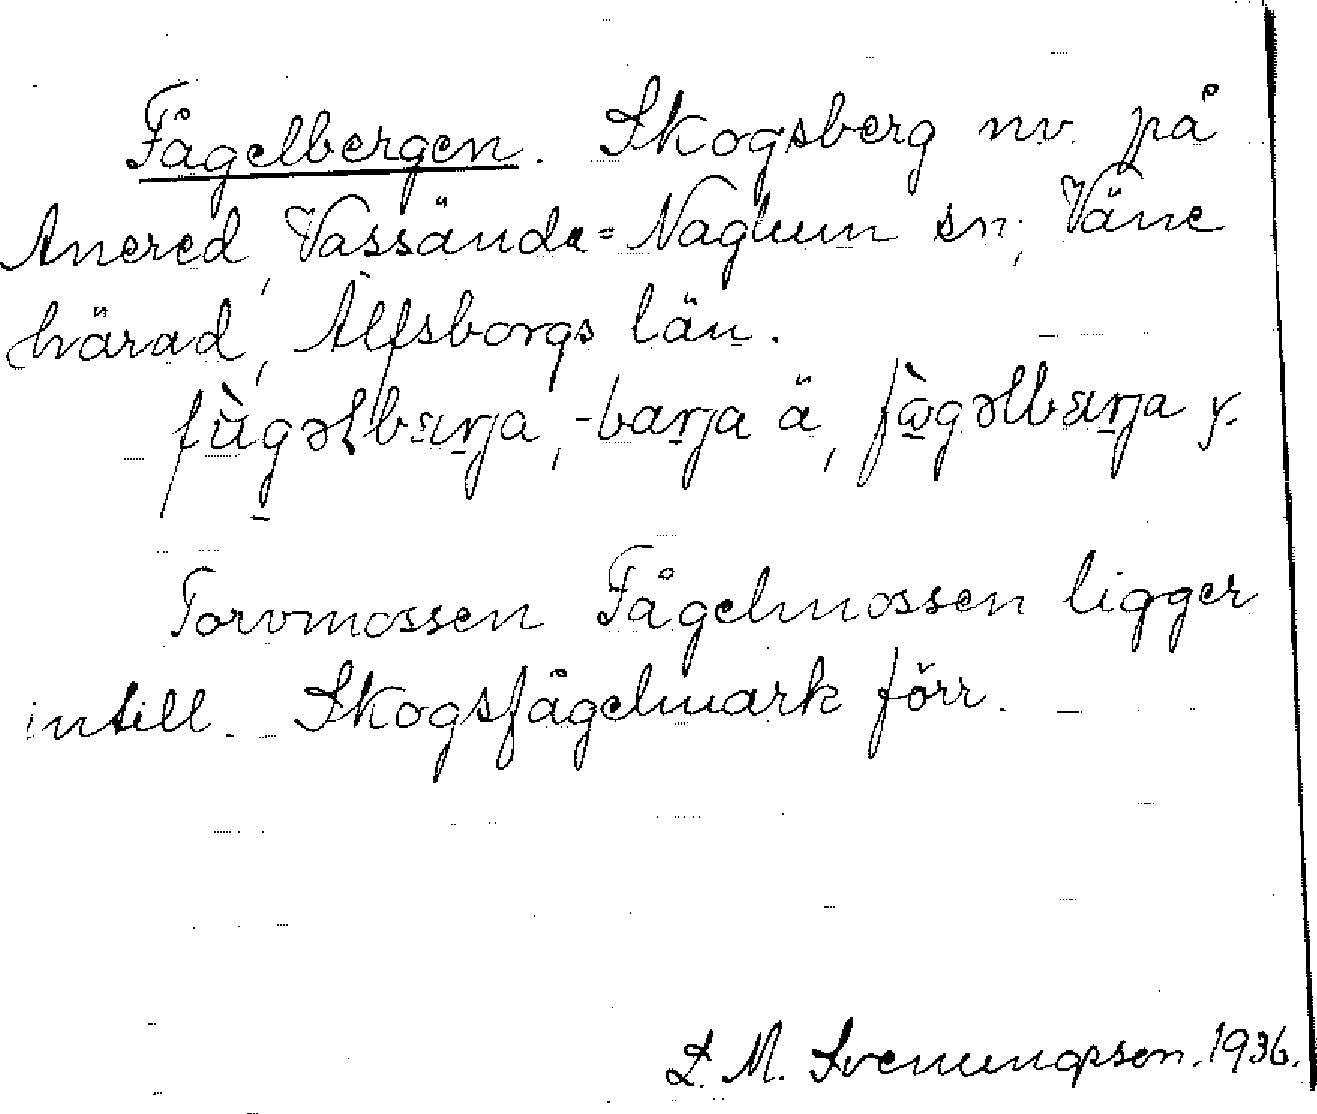 Fågelbergen. Skogsberg nv. på
Anered, Vassända=Naglum sn; Väne
härad, Älfsborgs län.
fù̱gəɫbæṟja, -baṟja ä, fò̱gəlbæṟja y.
Torvmossen Fågelmossen ligger
intill. Skogsfågelmark förr.
L. M. Svenungsson. 1936.